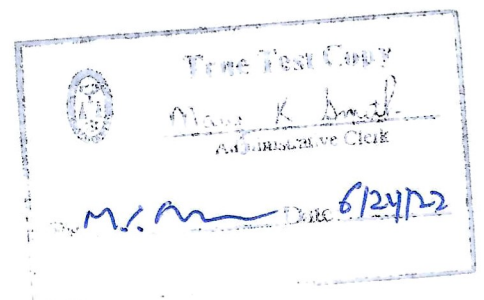 True Test Copy
Mary K Smith
Administrative Clerk
Date 6/24/22